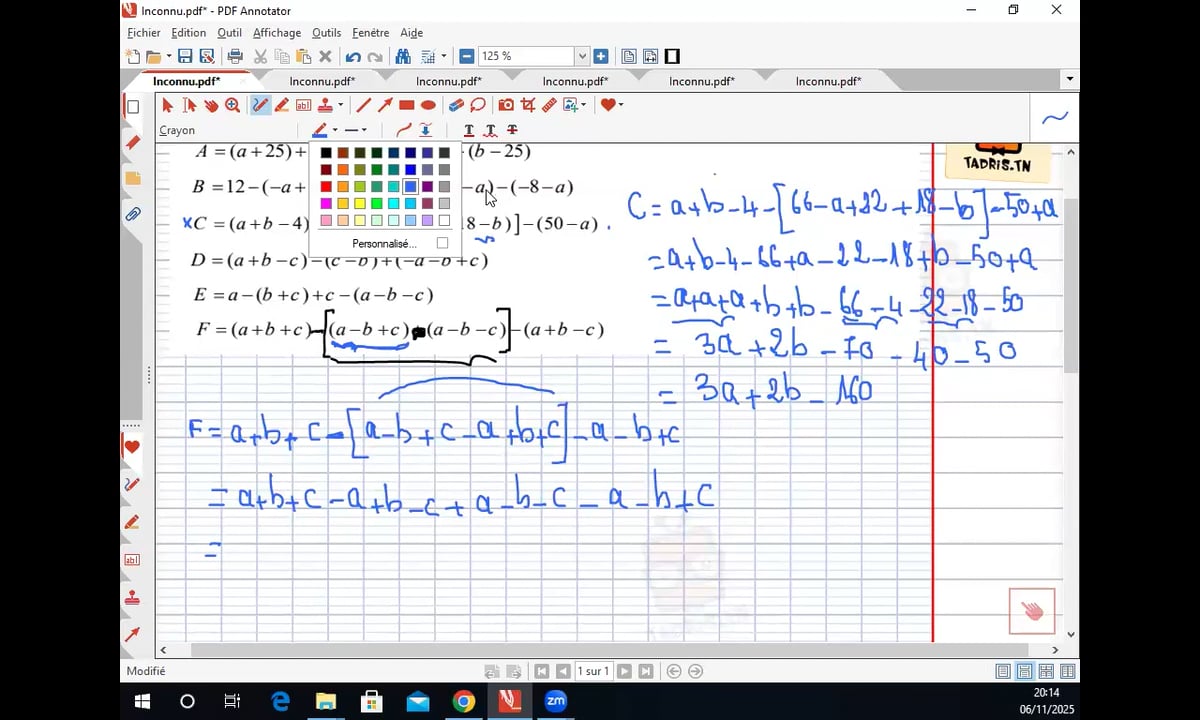 Inconnu.pdf* - PDF Annotator
Fichier Edition Outil Affichage Outils Fenêtre Aide
125 %
Inconnu.pdf* Inconnu.pdf* Inconnu.pdf* Inconnu.pdf* Inconnu.pdf* Inconnu.pdf*
Crayon
Personnalisé...
TADRIS.TN
A = (a+25)+ (b−25)
B = 12−(−a+ −a)−(−8−a)
×C = (a+b−4) 8−b)]−(50−a) .
D = (a+b−c)−(c−b)+(−a−b+c)
E = a−(b+c)+c−(a−b−c)
F = (a+b+c)-[(a−b+c)-(a−b−c)]−(a+b−c)
C = a+b-4-[66-a+22+18-b]-50+a
=a+b-4-66+a-22-18+b-50+a
=a+a+a+b+b-66-4-22-18-50
= 3a+2b-70-40-50
= 3a+2b-160
F= a+b+c-[a-b+c-a+b+c]-a-b+c
= a+b+c-a+b-c+a-b-c-a-b+c
=
1 sur 1
Modifié
zm
20:14
06/11/2025